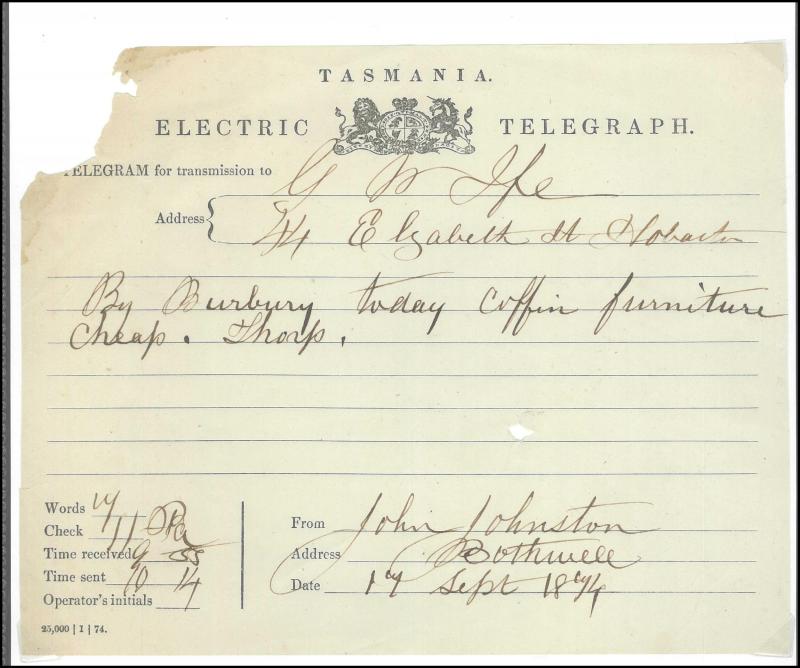 TASMANIA.
ELECTRIC TELEGRAPH.
TELEGRAM for transmission to G W Ife
Address 44 Elizabeth St Hobarton
By Burbury today coffin furniture
cheap. Thorp.
Words
Check 11 Pd
Time received 9 55
Time sent 10 14
Operator's initials
From John Johnston
Address Bothwell
Date 17 Sept 1874
25,000 | 1 | 74.